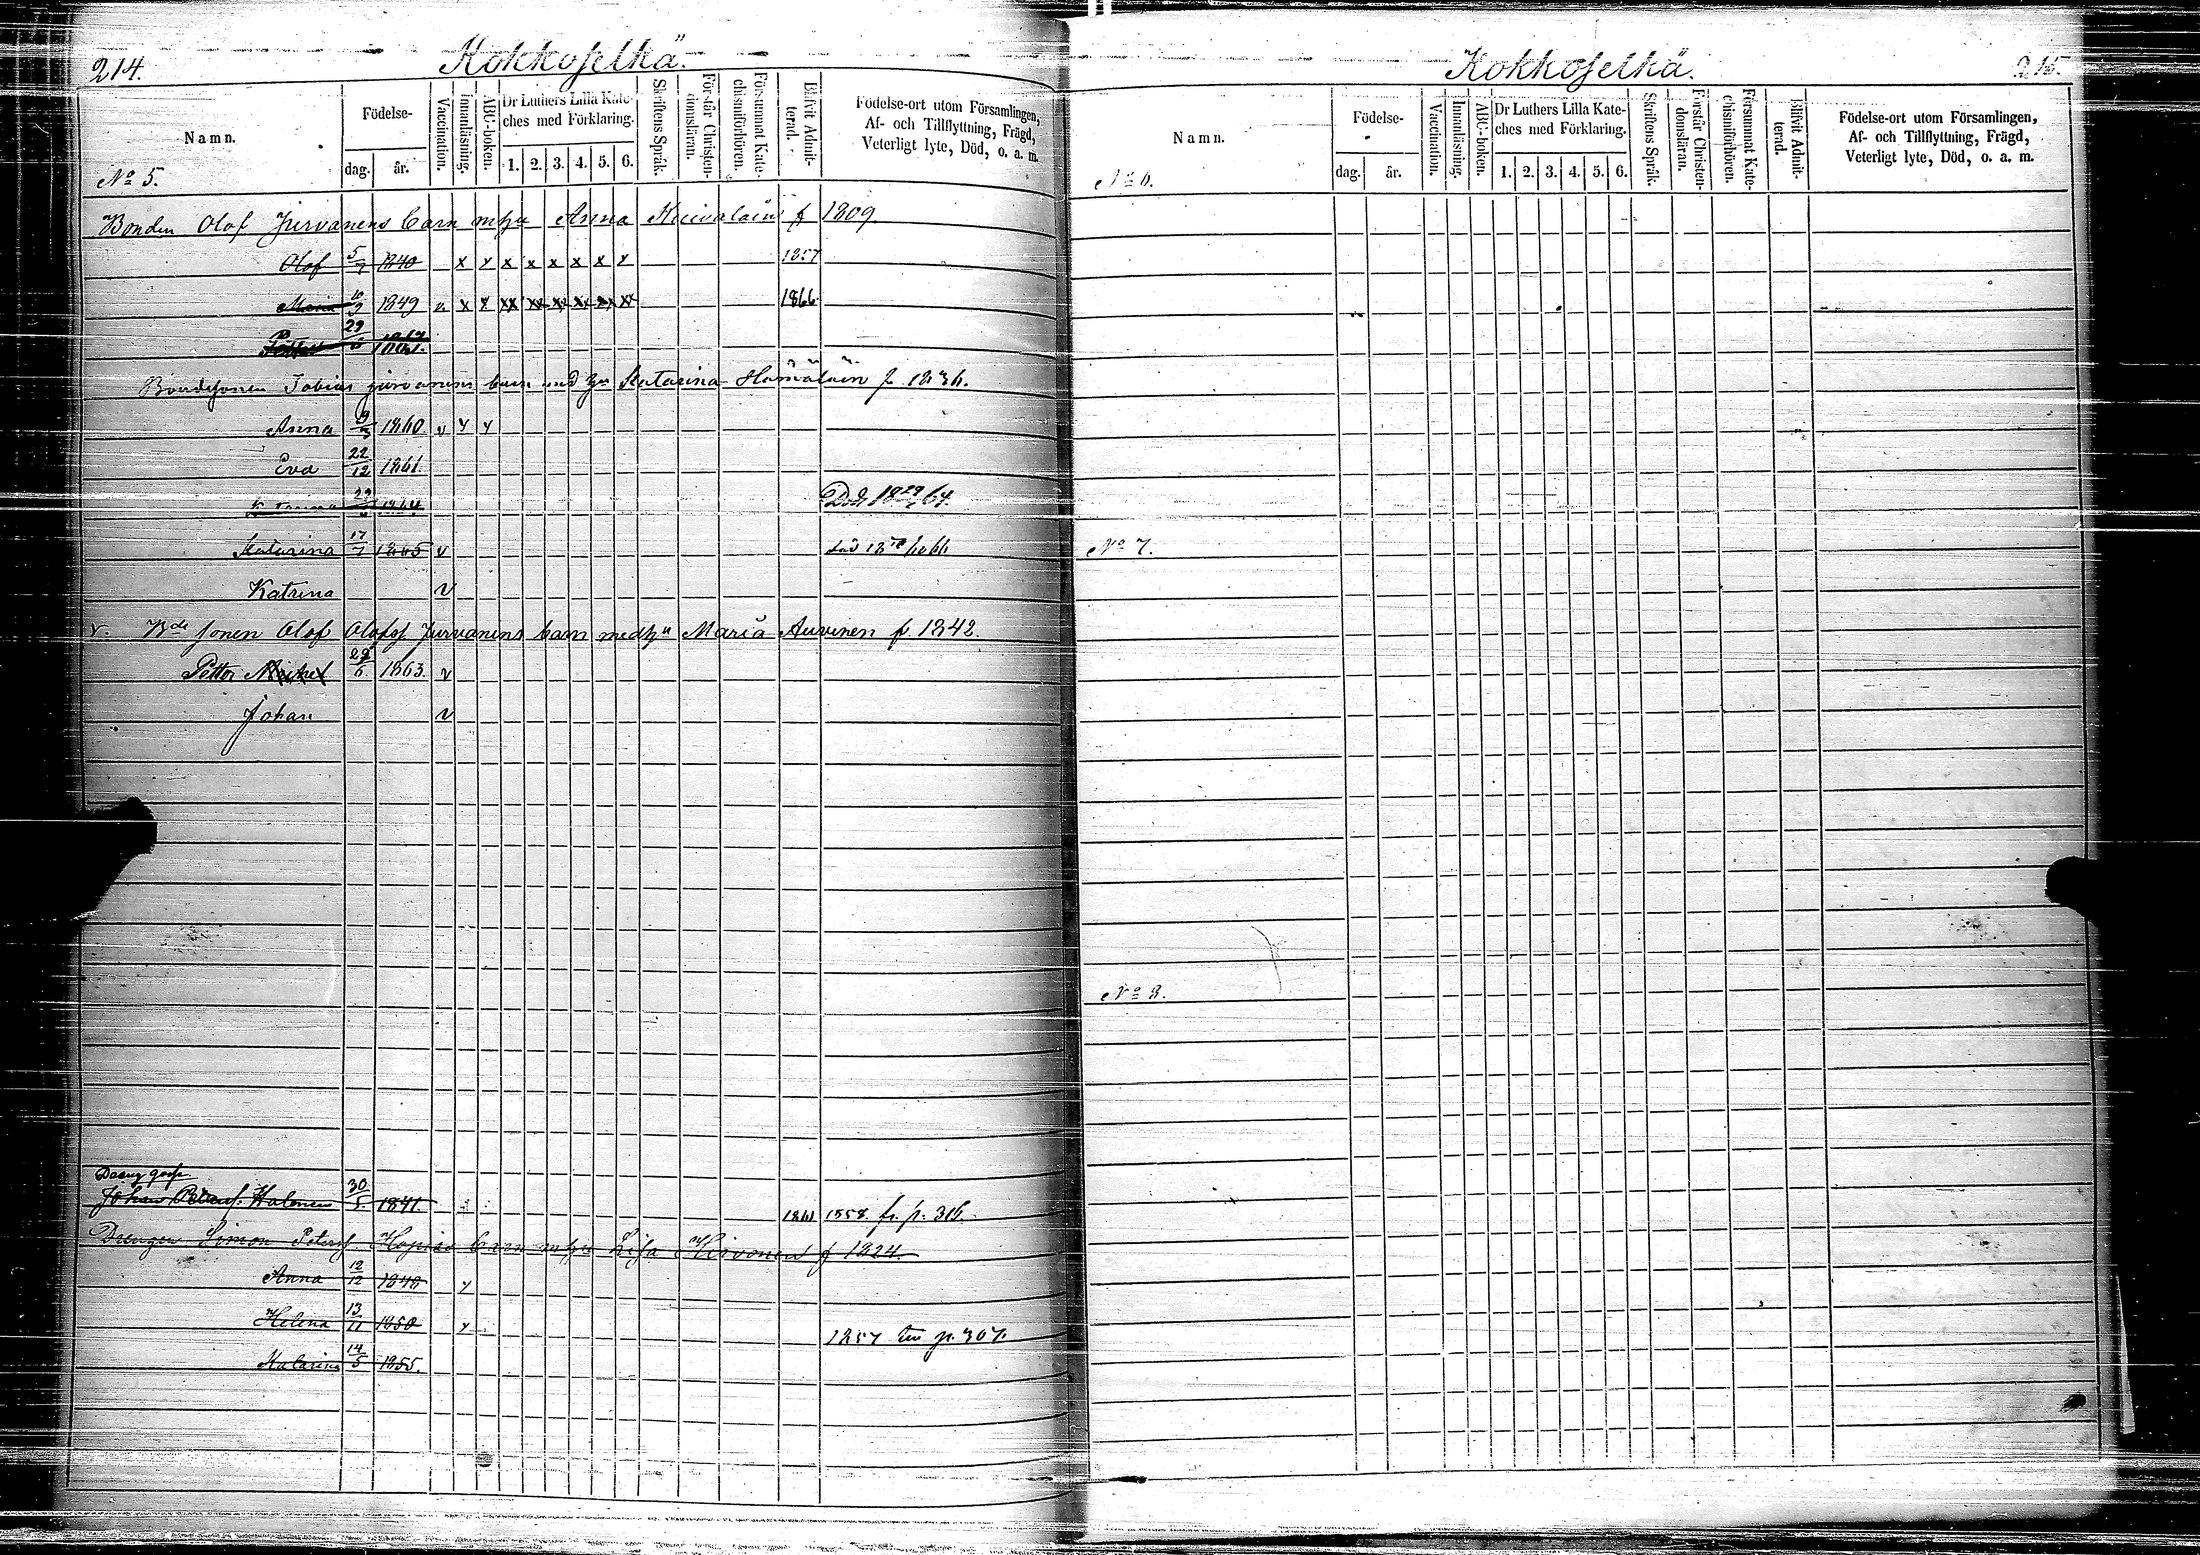 214.
Kokkoselkä.
Namn.
Födelse-
dag.
år.
Vaccination.
Innanläsning.
ABC-boken.
Dr Luthers Lilla Kate-
ches med Förklaring.
1. 2. 3. 4. 5. 6.
Skriftens Språk.
Förstår Christen-
domsläran.
Försummat Kate-
chismiförhören.
Blifvit Admit-
terad.
Födelse-ort utom Församlingen,
Af- och Tillflyttning, Frägd,
Veterligt lyte, Död, o. a. m.
No 5.
Bonden Olof Jurvanens barn m hu Anna f 1809.
Olof 5/7 1840 x x x x x x x x 1857
Maria 10/9 1849 v x x xx xx xx xx xx xx 1866
29/6
Bondesonen Tobias jurvanens barn med hu Katarina Hämäläin f. 1836.
Anna 9/3 1860 v x x
Eva 22/12 1861.
29 1864 Död 18 64.
Katarina 17/7 1865 v
Katrina v
v. Bde sonen Olof Olofss Jurvanens barn med hu Maria Auvinen f. 1842.
Petter Michel 29/6 1863. v
Johan v
Dreng
Johan Halonen 30/5 1841. 1858 fr. p. 316.
Drengen Simon Peterss. barn m hu Lisa Hirvonen f 1824.
Anna 12/12 1848 x
Helena 13/11 1850 x 1857 till p. 307.
Katarina 14/5 1855.
Kokkoselkä.
215.
Namn.
Födelse-
dag.
år.
Vaccination.
Innanläsning.
ABC-boken.
Dr Luthers Lilla Kate-
ches med Förklaring.
1. 2. 3. 4. 5. 6.
Skriftens Språk.
Förstår Christen-
domsläran.
Försummat Kate-
chismiförhören.
Blifvit Admit-
terad.
Födelse-ort utom Församlingen,
Af- och Tillflyttning, Frägd,
Veterligt lyte, Död, o. a. m.
No 6.
No 7.
No 8.